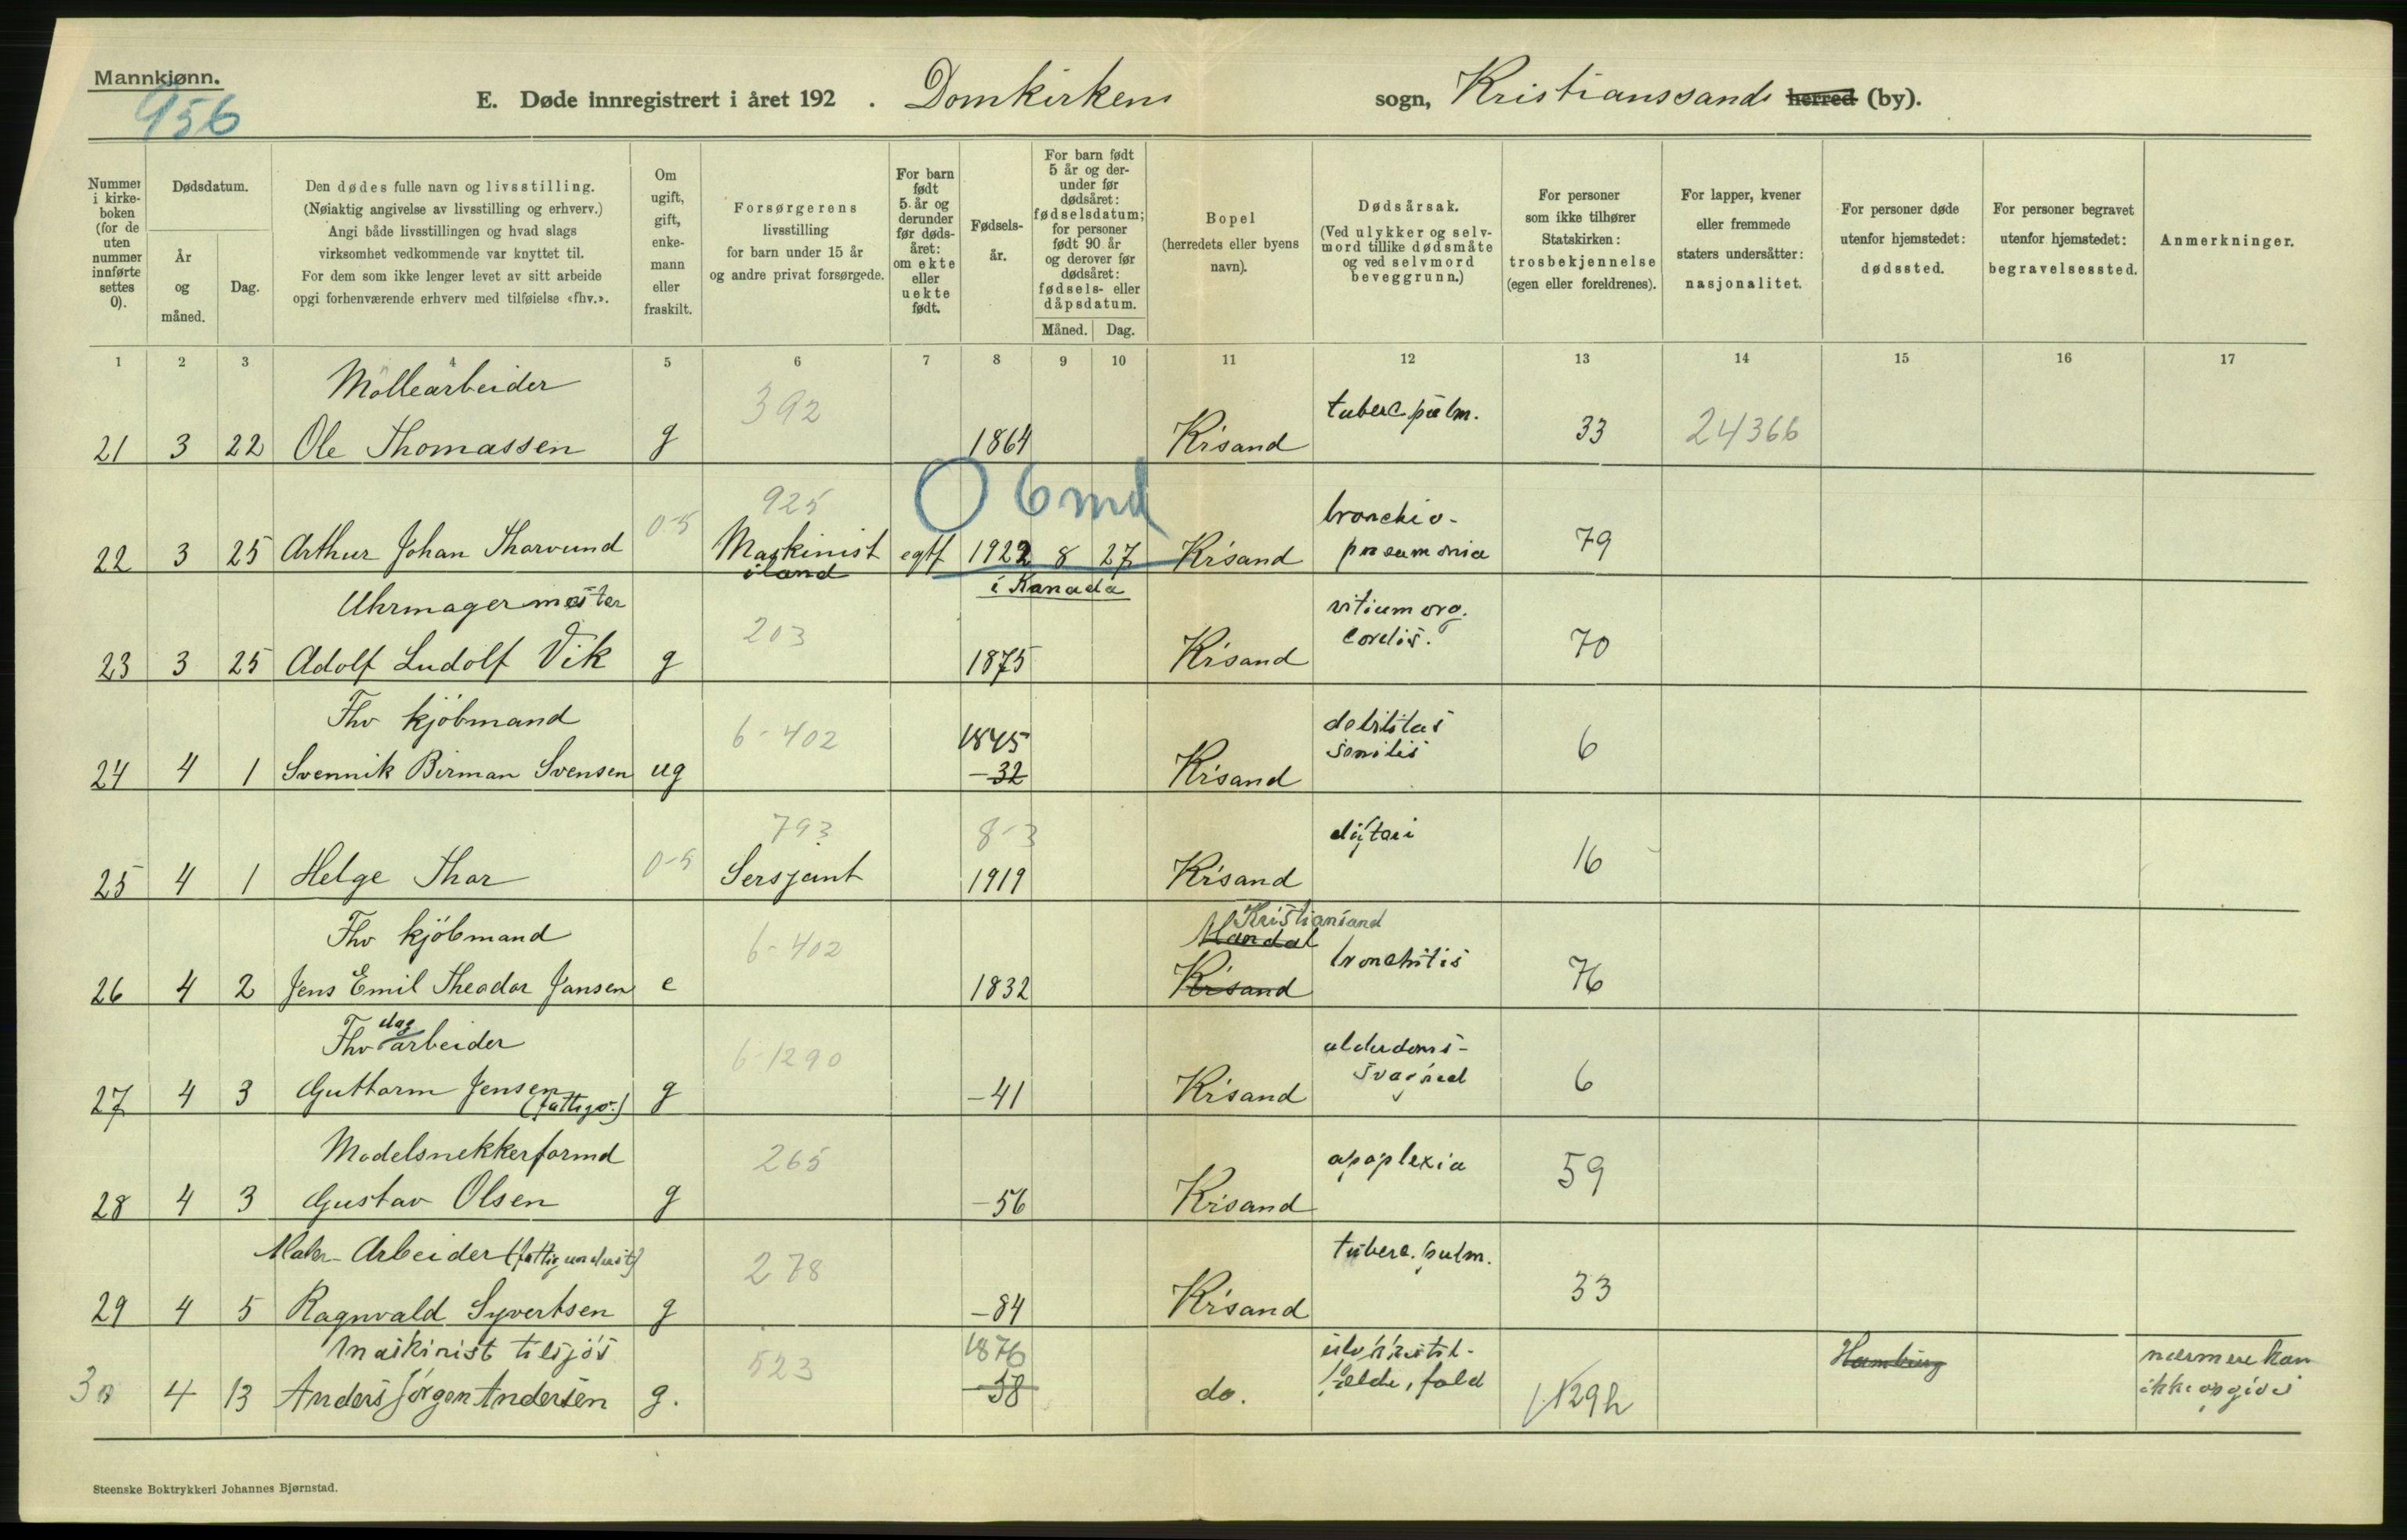 Mannkjønn.
956
E. Døde innregistrert i året 192 . Domkirkens sogn, Kristianssands herred (by).
Nummer i kirkeboken (for de uten nummer innførte settes 0).
Dødsdatum.
År og måned.
Dag.
Den dødes fulle navn og livsstilling.
(Nøiaktig angivelse av livsstilling og erhverv.)
Angi både livsstillingen og hvad slags
virksomhet vedkommende var knyttet til.
For dem som ikke lenger levet av sitt arbeide
opgi forhenværende erhverv med tilføielse «fhv.».
Om ugift, gift, enkemann eller fraskilt.
Forsørgerens
livsstilling
for barn under 15 år
og andre privat forsørgede.
For barn født 5 år og derunder før dødsåret: om ekte eller uekte født.
Fødselsår.
For barn født 5 år og derunder før dødsåret: fødselsdatum; for personer født 90 år og derover før dødsåret: fødsels- eller dåpsdatum.
Måned. Dag.
Bopel
(herredets eller byens
navn).
Dødsårsak.
(Ved ulykker og selvmord tillike dødsmåte og ved selvmord beveggrunn.)
For personer
som ikke tilhører
Statskirken:
trosbekjennelse
(egen eller foreldrenes).
For lapper, kvener
eller fremmede
staters undersåtter:
nasjonalitet.
For personer døde
utenfor hjemstedet:
dødssted.
For personer begravet
utenfor hjemstedet:
begravelsessted.
Anmerkninger.
1 2 3 4 5 6 7 8 9 10 11 12 13 14 15 16 17
Möllearbeider 392 tuberc. pulm.
21 3 22 Ole Thomassen g 1864 Kr'sand 33 24366
0-5 925 O 6 md bronchio-
22 3 25 Arthur Johan Thorvund Maskinist egtf 1922 8 27 Kr'sand pneumonia 79
iland i Kanada
Uhrmagermester 203 vitium org.
cordis.
23 3 25 Adolf Ludolf Vik g 1875 Kr'sand 70
Fhv kjöbmand 6-402 1845 debilitas
senilis
24 4 1 Svennik Birman Svensen ug -32 Kr'sand 6
0-5 793 8-3
25 4 1 Helge Thor Sersjant 1919 Kr'sand 16
Fhv kjöbmand 6-402 Kristiansand
Mandal
bronchitis
26 4 2 Jens Emil Theodor Jansen e 1832 Kr'sand 76
Fhv dagarbeider 6-1290 alderdoms-
27 4 3 Guttorm Jensen g -41 Kr'sand 6
Modelsnekkerformd 265 apoplexia
28 4 3 Gustav Olsen g -56 Kr'sand 59
Maler- Arbeider 278 tuberc. pulm.
29 4 5 Ragnvald Syvertsen g -84 Kr'sand 33
Maskinist tilsjøs 523 1876 Hamburg nærmere kan
30 4 13 Anders Jörgen Andersen g. -58 do. fald 129h ikke opgives
Steenske Boktrykkeri Johannes Bjørnstad.